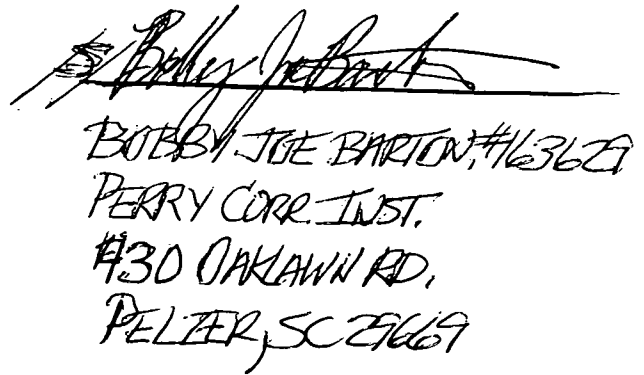 s/ Bobby Joe Barton
BOBBY JOE BARTON, #163629
PERRY CORR. INST.
430 OAKLAWN RD.
PELZER, SC 29669